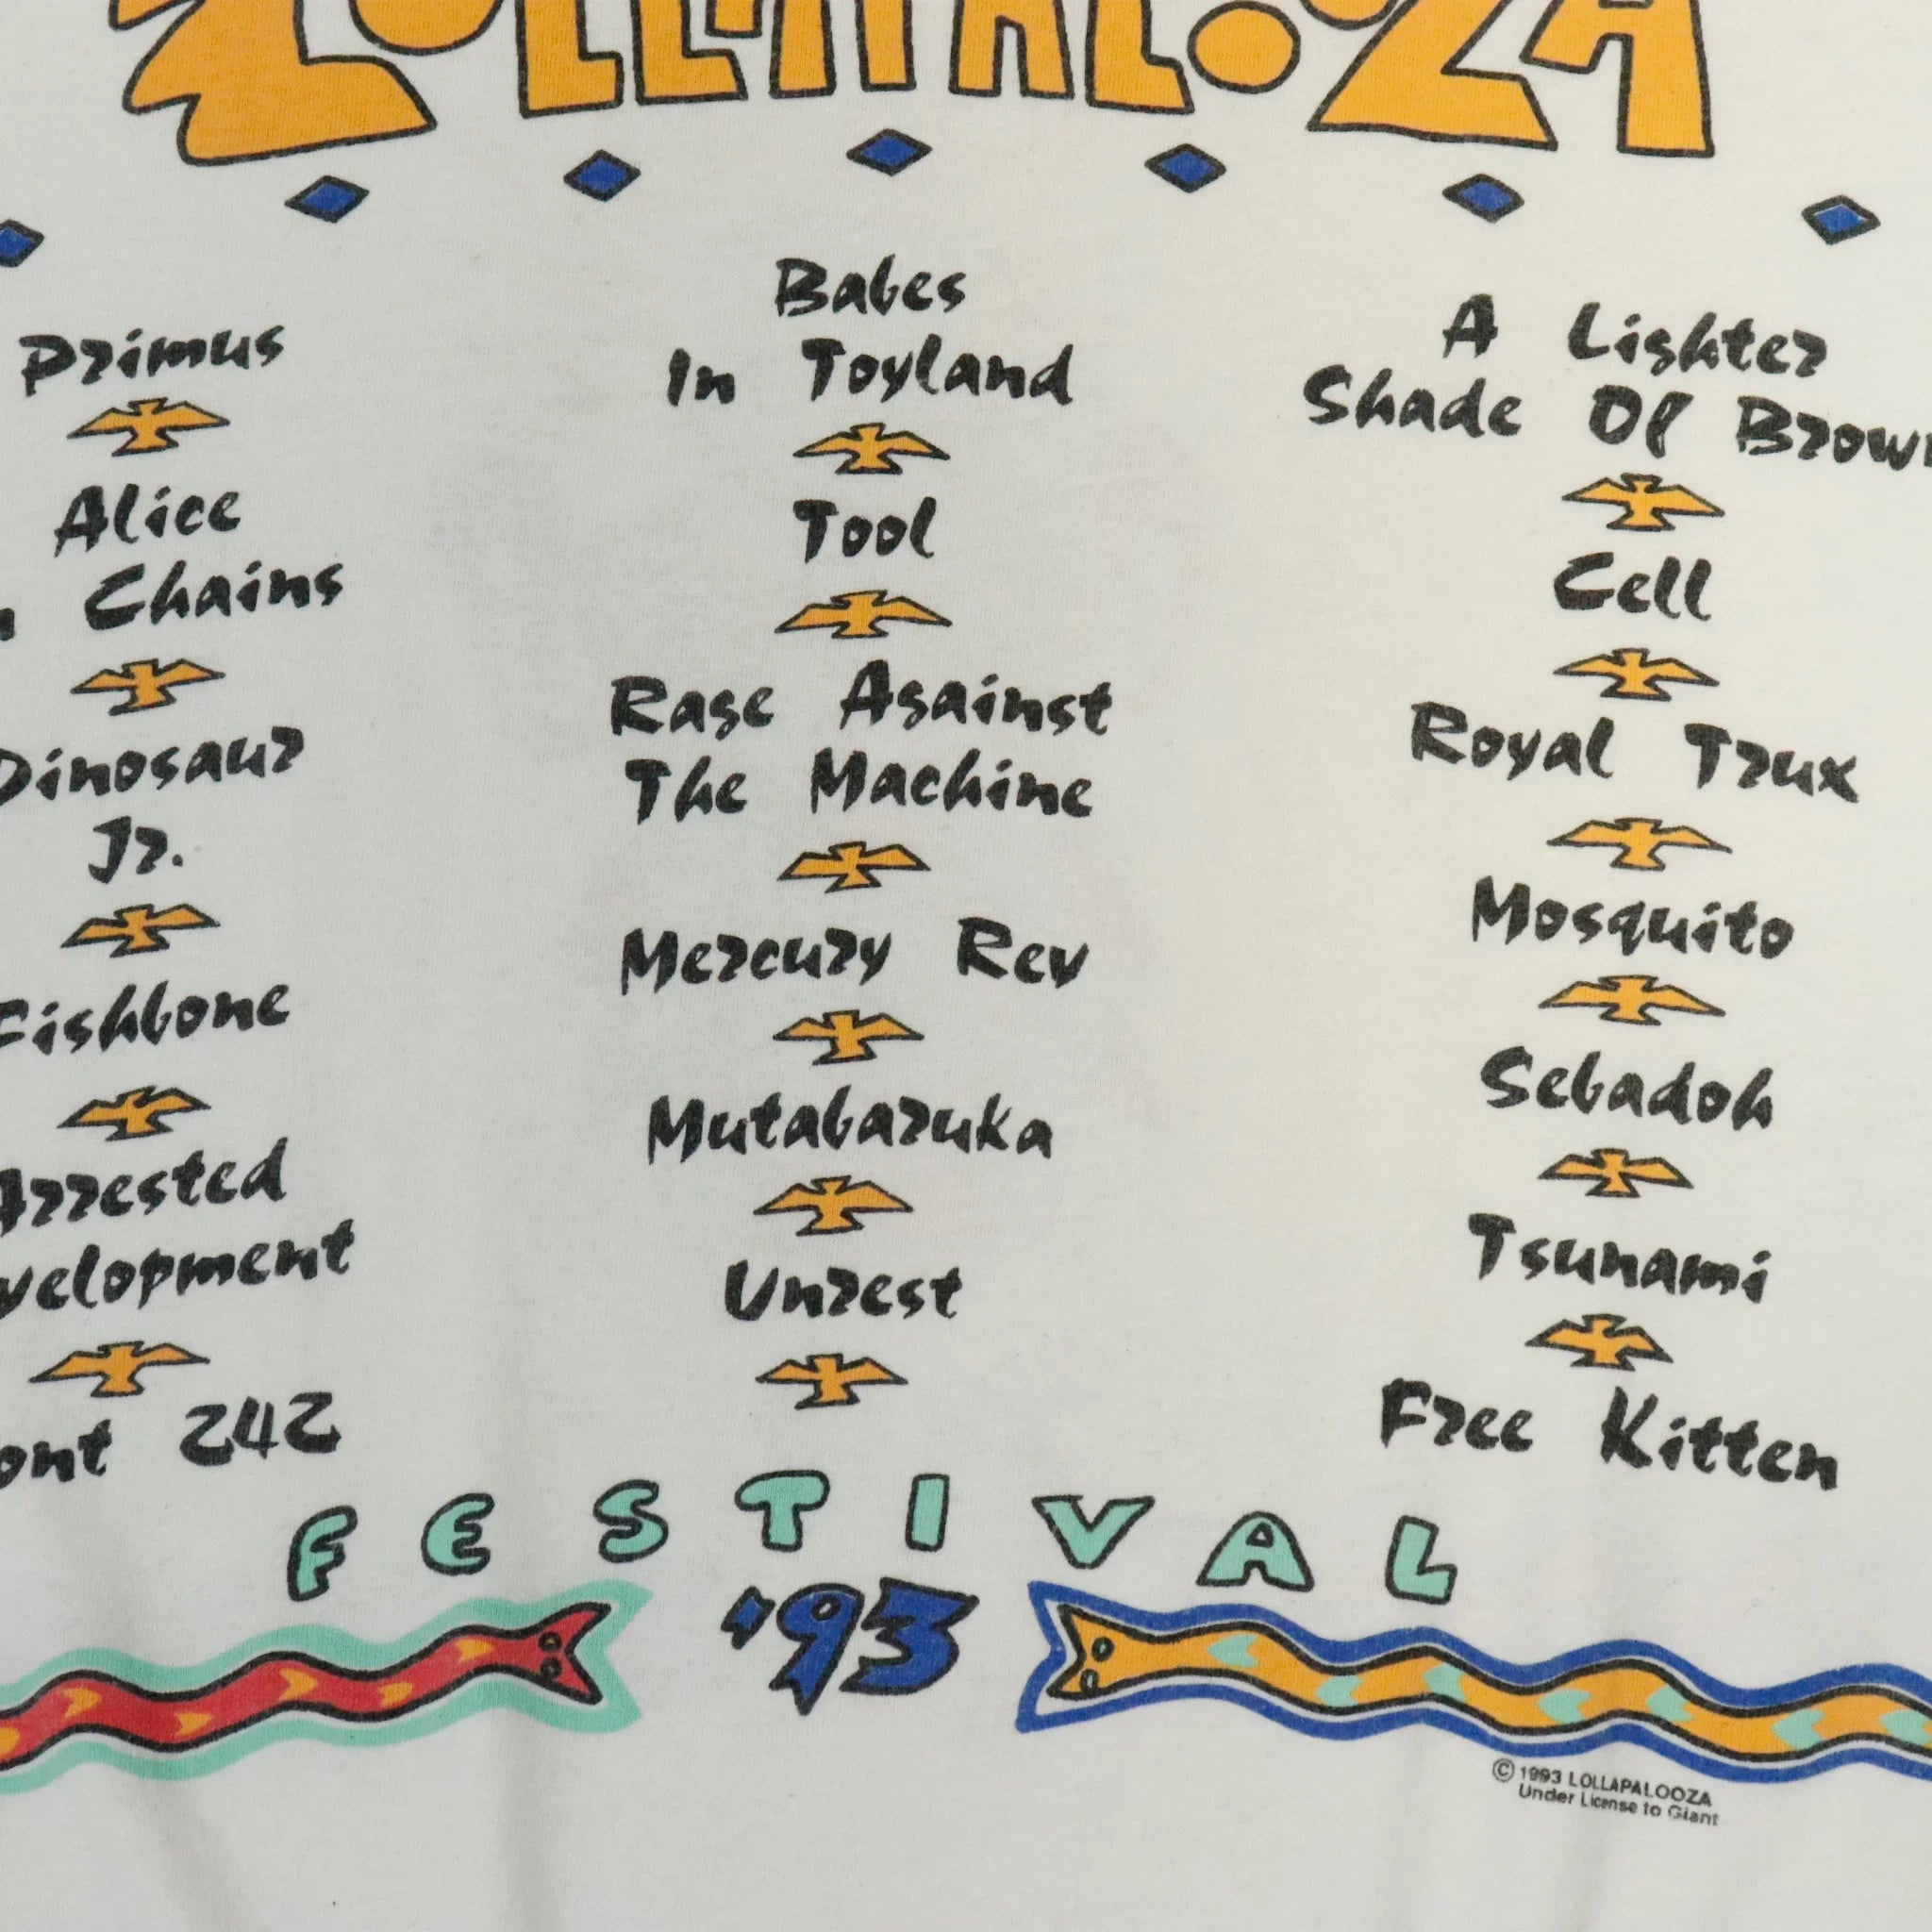 LOLLAPALOOZA
Primus
Alice
Chains
Dinosaur
Jr.
Fishbone
Arrested
velopment
ont 242
Babes
In Toyland
Tool
Rage Against
The Machine
Mercury Rev
Mutabaruka
Unrest
A Lighter
Shade Of Brown
Cell
Royal Trux
Mosquito
Sebadoh
Tsunami
Free Kitten
FESTIVAL
'93
© 1993 LOLLAPALOOZA
Under License to Giant